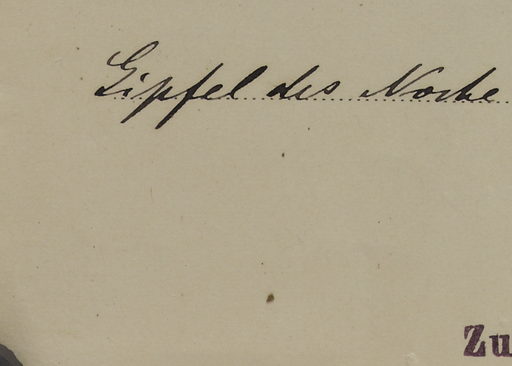 Gipfel des Noche
Zu